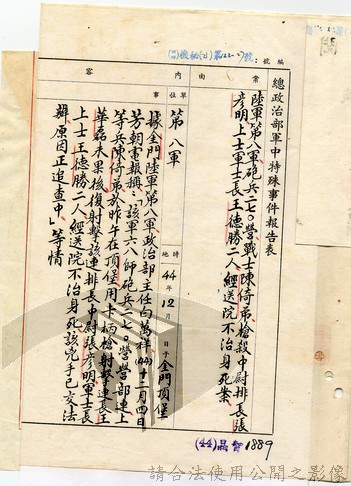 編號:
(44)機秘(乙)第122-27號
總政治部軍中特殊事件報告表
案由
陸軍第八軍砲兵二七〇營戰士陳倚弟槍殺中尉排長張
彥明上士軍士長王德勝二人經送院不治身死案
單位
第八軍
時地
44年12月 日子金門頂堡
內容
事
據金門陸軍第八軍政治部主任白萬祥(44)十二月四日
芳朝電報稱:「該軍六八師砲兵二七〇營營部連上
等兵陳倚弟於昨午在頂堡用卡柄槍射擊連長王
華磊未果後復射擊該連排長中尉張彥明軍士長
上士王德勝二人經送院不治身死該兇手已交法
辦原因正追查中」等情
(44)品智1889
請合法使用公開之影像